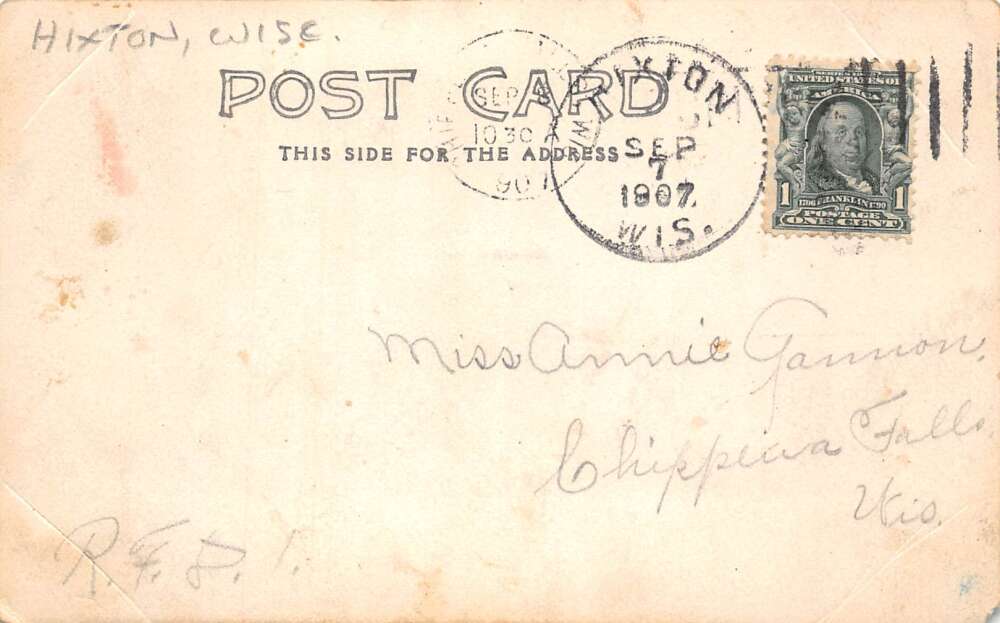 HIXTON, WISC.
POST CARD
THIS SIDE FOR THE ADDRESS
SEP
1030 A
907
HIXTON
SEP
7
1907.
WIS.
SERIES 1902
UNITED STATES OF
AMERICA
1 1
1706 FRANKLIN 1790
POSTAGE
ONE CENT
Miss Annie Gannon,
Chippewa Falls
Wis.
R.F.D. 1.